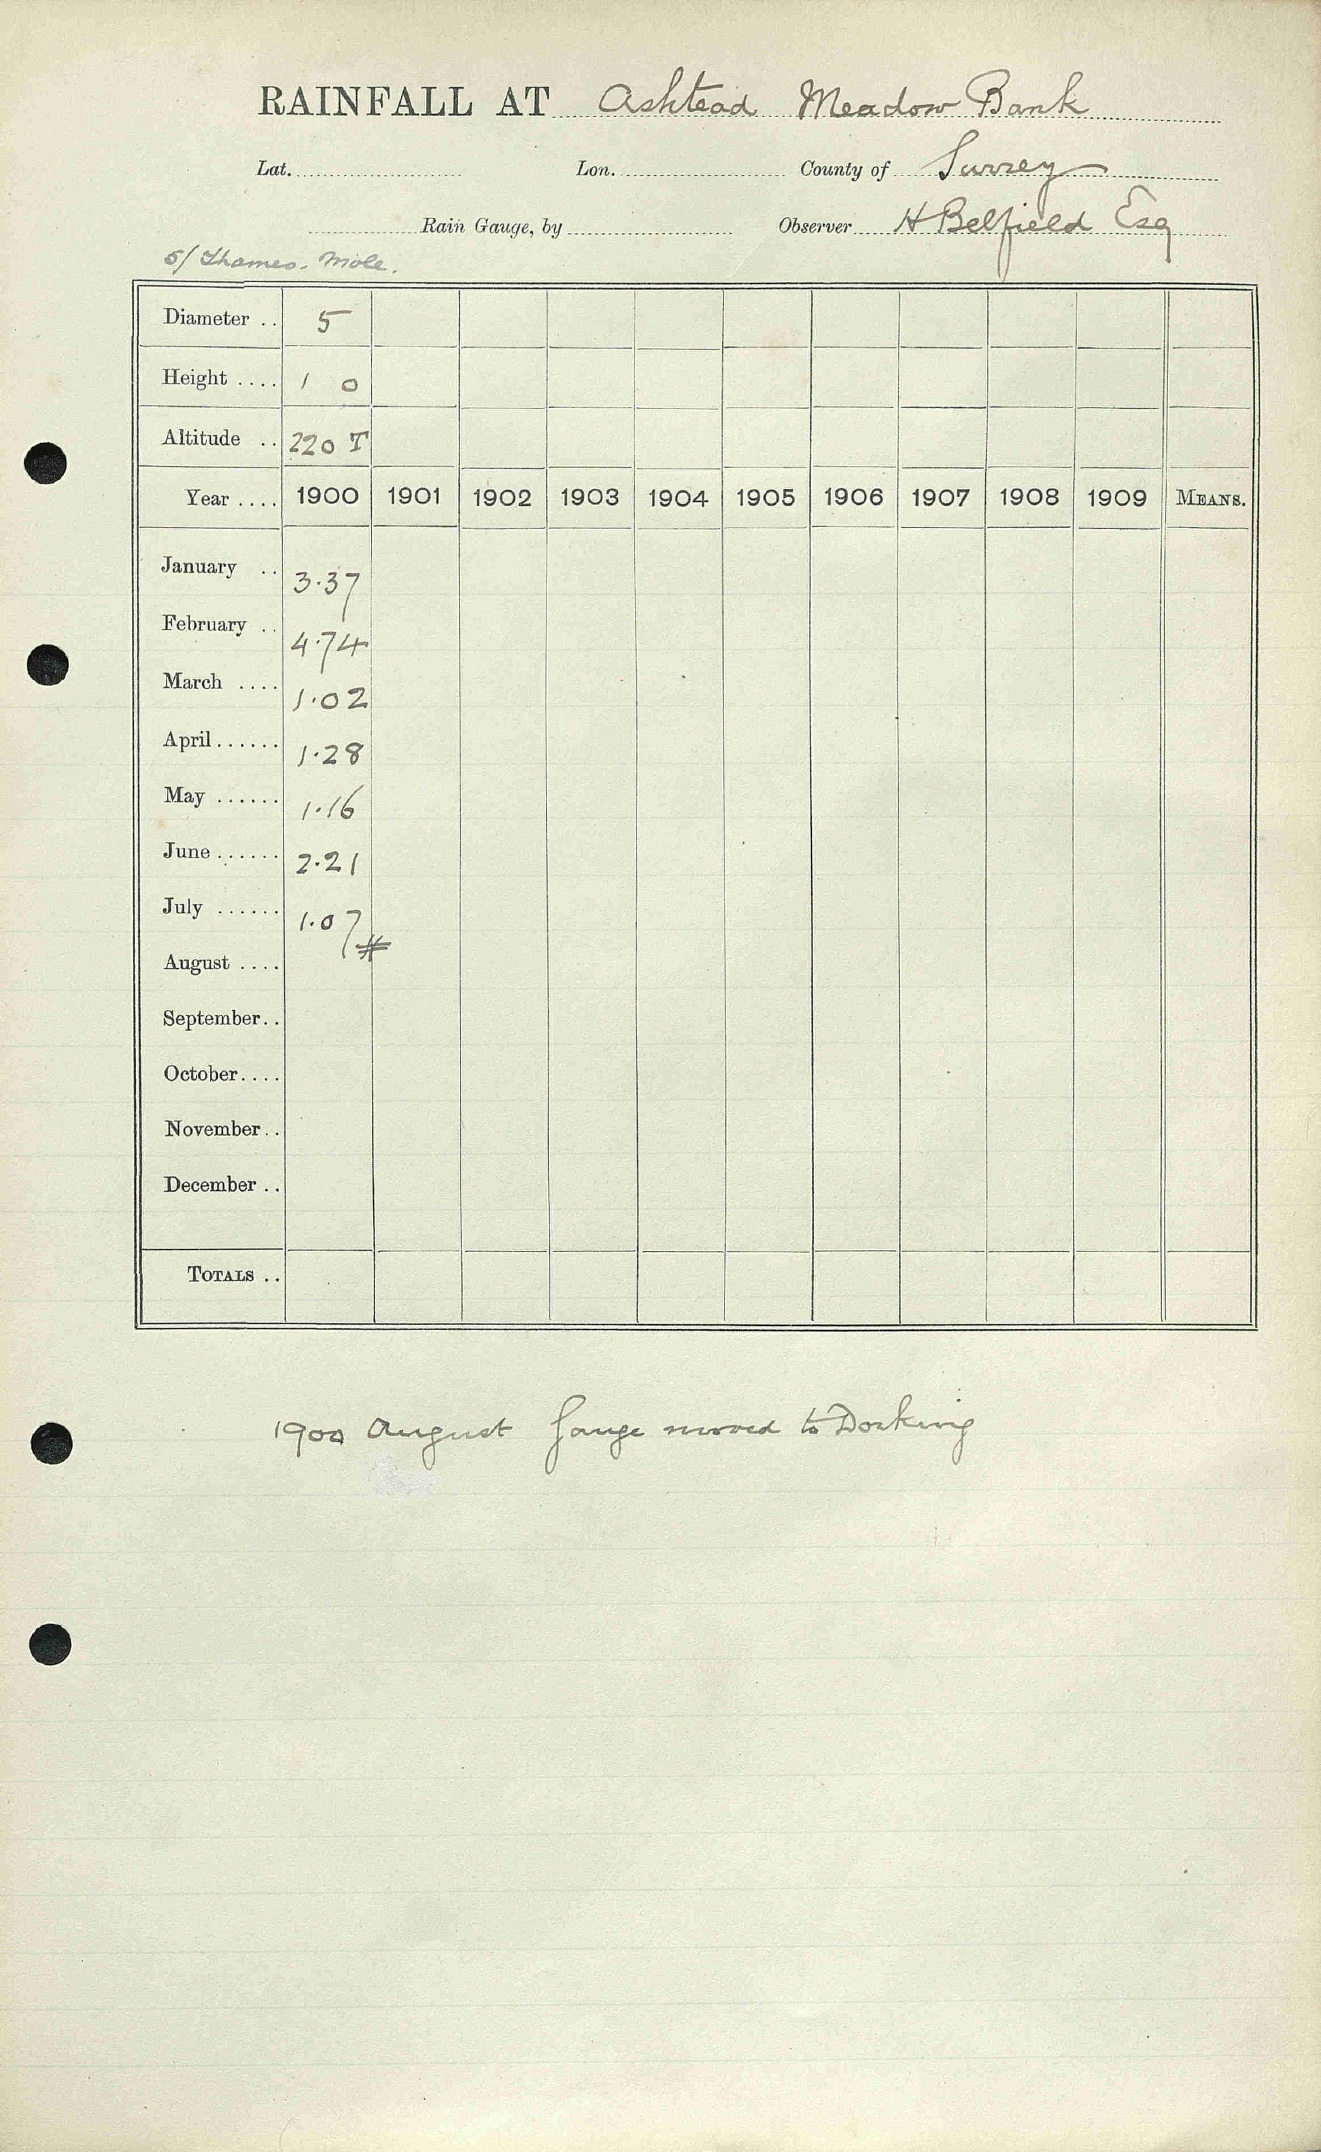 RAINFALL AT Ashtead Meadow Bank
Lat. Lon. County of Surrey
Rain Gauge, by Observer H Belfield Esq
5/ Thames. Mole.
Diameter .. 5
Height .... 1 0
Altitude .. 220 T
Year .... 1900 1901 1902 1903 1904 1905 1906 1907 1908 1909 MEANS.
January .. 3.37
February .. 4.74
March .... 1.02
April ...... 1.28
May ...... 1.16
June ...... 2.21
July ...... 1.07 #
August ....
September..
October....
November..
December ..
TOTALS ..
1900 August Gauge moved to Dorking